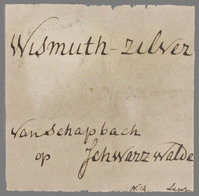 Wismuth-zilver
van Schapbach
op Schwarzwalde